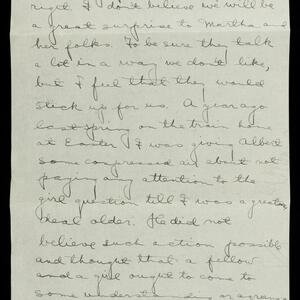 right. I don't believe we will be
a great surprise to Martha and
her folks. To be sure they talk
a lot in a way we don't like,
but I feel that they would
stick up for us. A year ago
last spring on the train home
at Easter I was giving Albert
some compressed air about not
paying any attention to the
girl question till I was a great
deal older. He did not
believe such action possible
and thought that a fellow
and a girl ought to come to
some understanding or agree